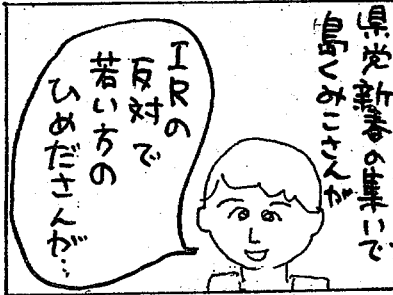 県党新春の集いで
島くみこさんが
IRの
反対で
若い方の
ひめださんが…